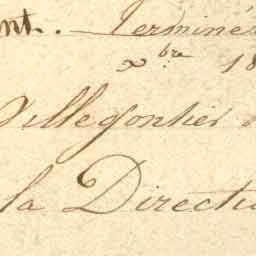 nt. — Terminé
xbre 18
Villegontier
la Directi